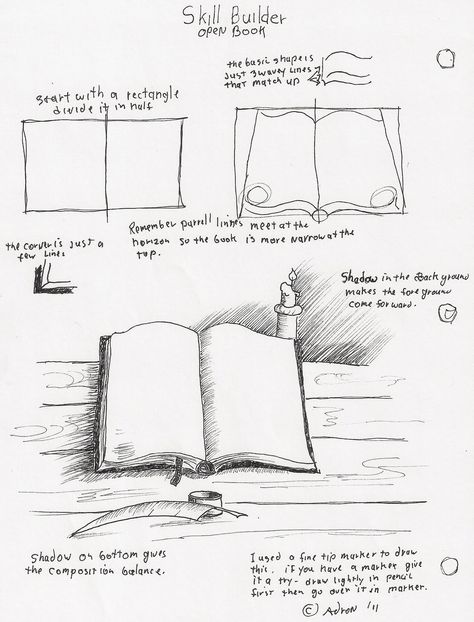 Skill Builder
OPEN BOOK
the basic shape is
just 3 wavey lines
that match up
start with a rectangle
divide it in half
Remember parrell linnes meet at the
horizon so the book is more narrow at the
top.
the corver is just a
few lines
Shadow in the Back ground
makes the fore ground
come forward.
Shadow on bottom gives
the composition balance.
I used a fine tip marker to draw
this. if you have a marker give
it a try- draw lightly in pencil
first then go over it in marker.
© Adron '11